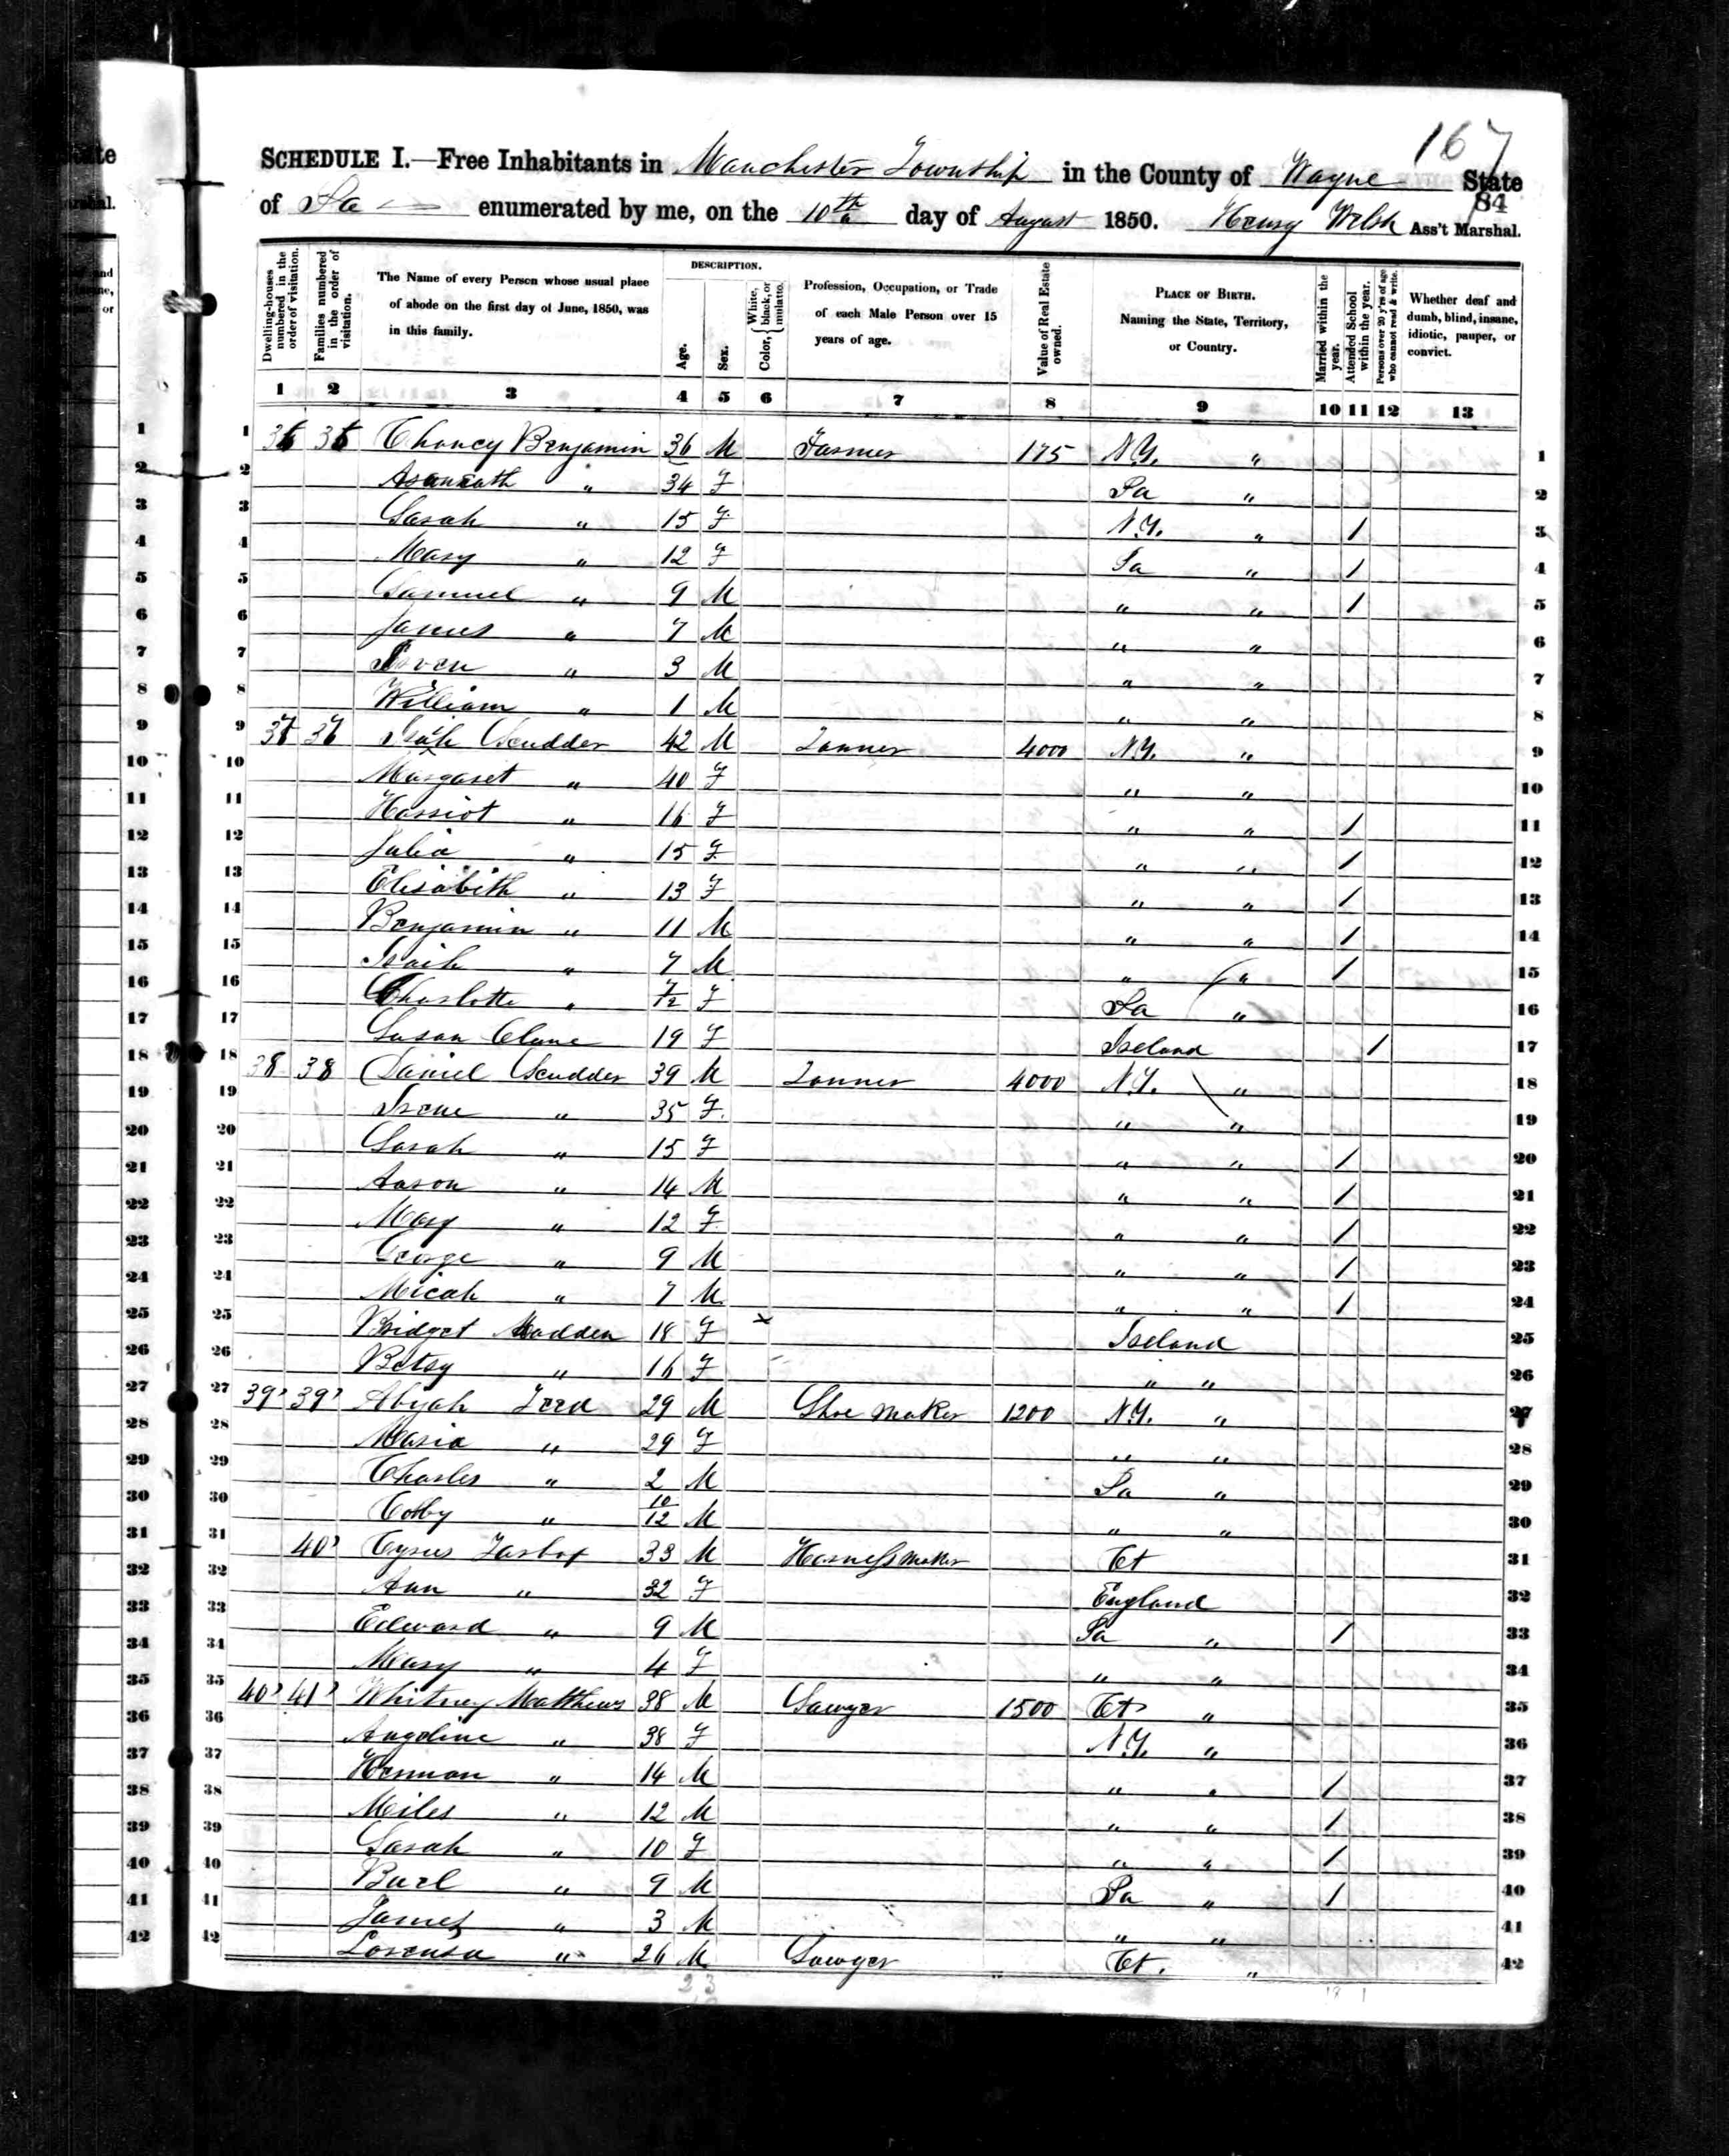 167
SCHEDULE I.—Free Inhabitants in Manchester Township in the County of Wayne State
84
of Pa enumerated by me, on the 10th day of August 1850. Henry Welsh Ass't Marshal.
Dwelling-houses numbered in the order of visitation.
Families numbered in the order of visitation.
The Name of every Person whose usual place of abode on the first day of June, 1850, was in this family.
DESCRIPTION.
Age.
Sex.
Color, { White, black, or mulatto.
Profession, Occupation, or Trade of each Male Person over 15 years of age.
Value of Real Estate owned.
PLACE OF BIRTH. Naming the State, Territory, or Country.
Married within the year.
Attended School within the year.
Persons over 20 y'rs of age who cannot read & write.
Whether deaf and dumb, blind, insane, idiotic, pauper, or convict.
1 2 3 4 5 6 7 8 9 10 11 12 13
1 36 36 Chancy Benjamin 36 M Farmer 175 N.Y. " 1
2 Asannath " 34 F Pa " 2
3 Sarah " 15 F N.Y. " 1 3
4 Mary " 12 F Pa " 1 4
5 Samuel " 9 M " " 1 5
6 James " 7 M " " 6
7 " 3 M " " 7
8 William " 1 M " " 8
9 37 37 Scudder 42 M Tanner 4000 N.Y. " 9
10 Margaret " 40 F " " 10
11 Harriot " 16 F " " 1 11
12 Julia " 15 F " " 1 12
13 Elisabith " 13 F " " 1 13
14 Benjamin " 11 M " " 1 14
15 Isaih " 7 M " " 1 15
16 Charlotte " 7/12 F Pa " 16
17 Susan Clune 19 F Ireland 1 17
18 38 38 Daniel Scudder 39 M Tanner 4000 N.Y. " 18
19 Irene " 35 F " " 19
20 Sarah " 15 F " " 1 20
21 Aaron " 14 M " " 1 21
22 Mary " 12 F " " 1 22
23 George " 9 M " " 1 23
24 Micah " 7 M " " 1 24
25 Bridget Madden 18 F x Ireland 25
26 Betsy " 16 F " " 26
27 39 39 Abijah 29 M Shoe maker 1200 N.Y. " 27
28 Maria " 29 F " " 28
29 Charles " 2 M Pa " 29
30 " 10/12 M " " 30
31 40 Cyrus Tarbox 33 M Harness maker Ct 31
32 Ann " 32 F England 32
33 Edward " 9 M Pa " 1 33
34 Mary " 4 F " " 34
35 40 41 Whitney Matthews 38 M Sawyer 1500 Ct " 35
36 Angeline " 38 F N.Y. " 36
37 Herman " 14 M " " 1 37
38 Miles " 12 M " " 1 38
39 Sarah " 10 F " " 1 39
40 Buel " 9 M Pa " 1 40
41 James " 3 M " " 41
42 " 26 M Sawyer " Ct. " 42
23